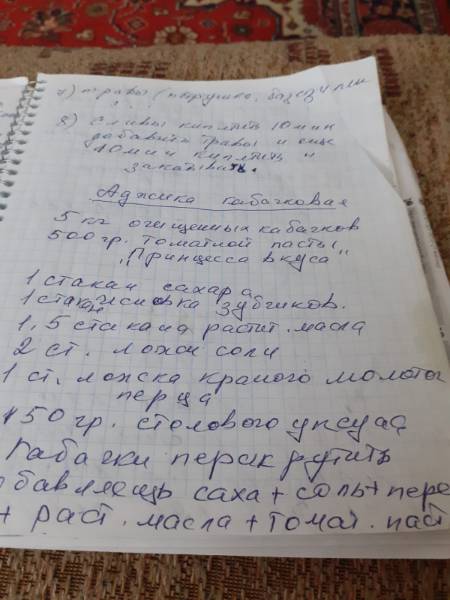 травы (петрушка, базилик
8) Сливы кипятить 10 мин
добавить травы и еще
10 мин кипятить и
закатывать.
Аджика кабачковая
5 кг очищенных кабачков
500 гр. томатной пасты
„Принцесса вкуса"
1 стакан сахара
1 стакан чеснока зубчиков.
1,5 стакана растит. масла
2 ст. ложки соли
1 ст. ложка красного молотого
перца
150 гр. столового уксуса
Кабачки перекрутить
бавляещь саха + соль + пере
+ раст. масла + томат. паст